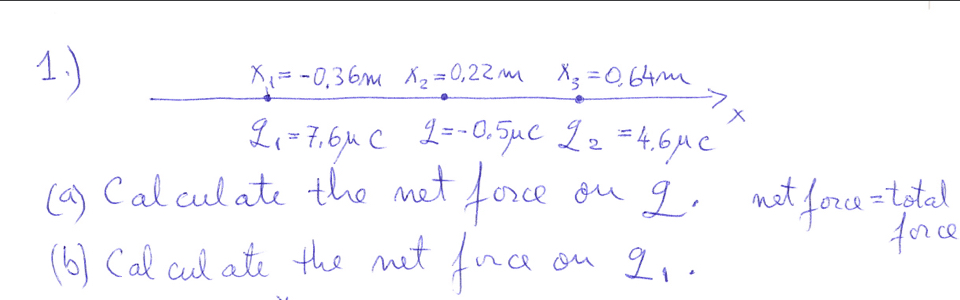 1.)
x₁ = -0,36m x₂ = 0,22m x₃ = 0,64m
x
q₁ = 7,6μC q = -0,5μC q₂ = 4,6μC
(a) Calculate the net force on q. net force = total force
(b) Calculate the net force on q₁.